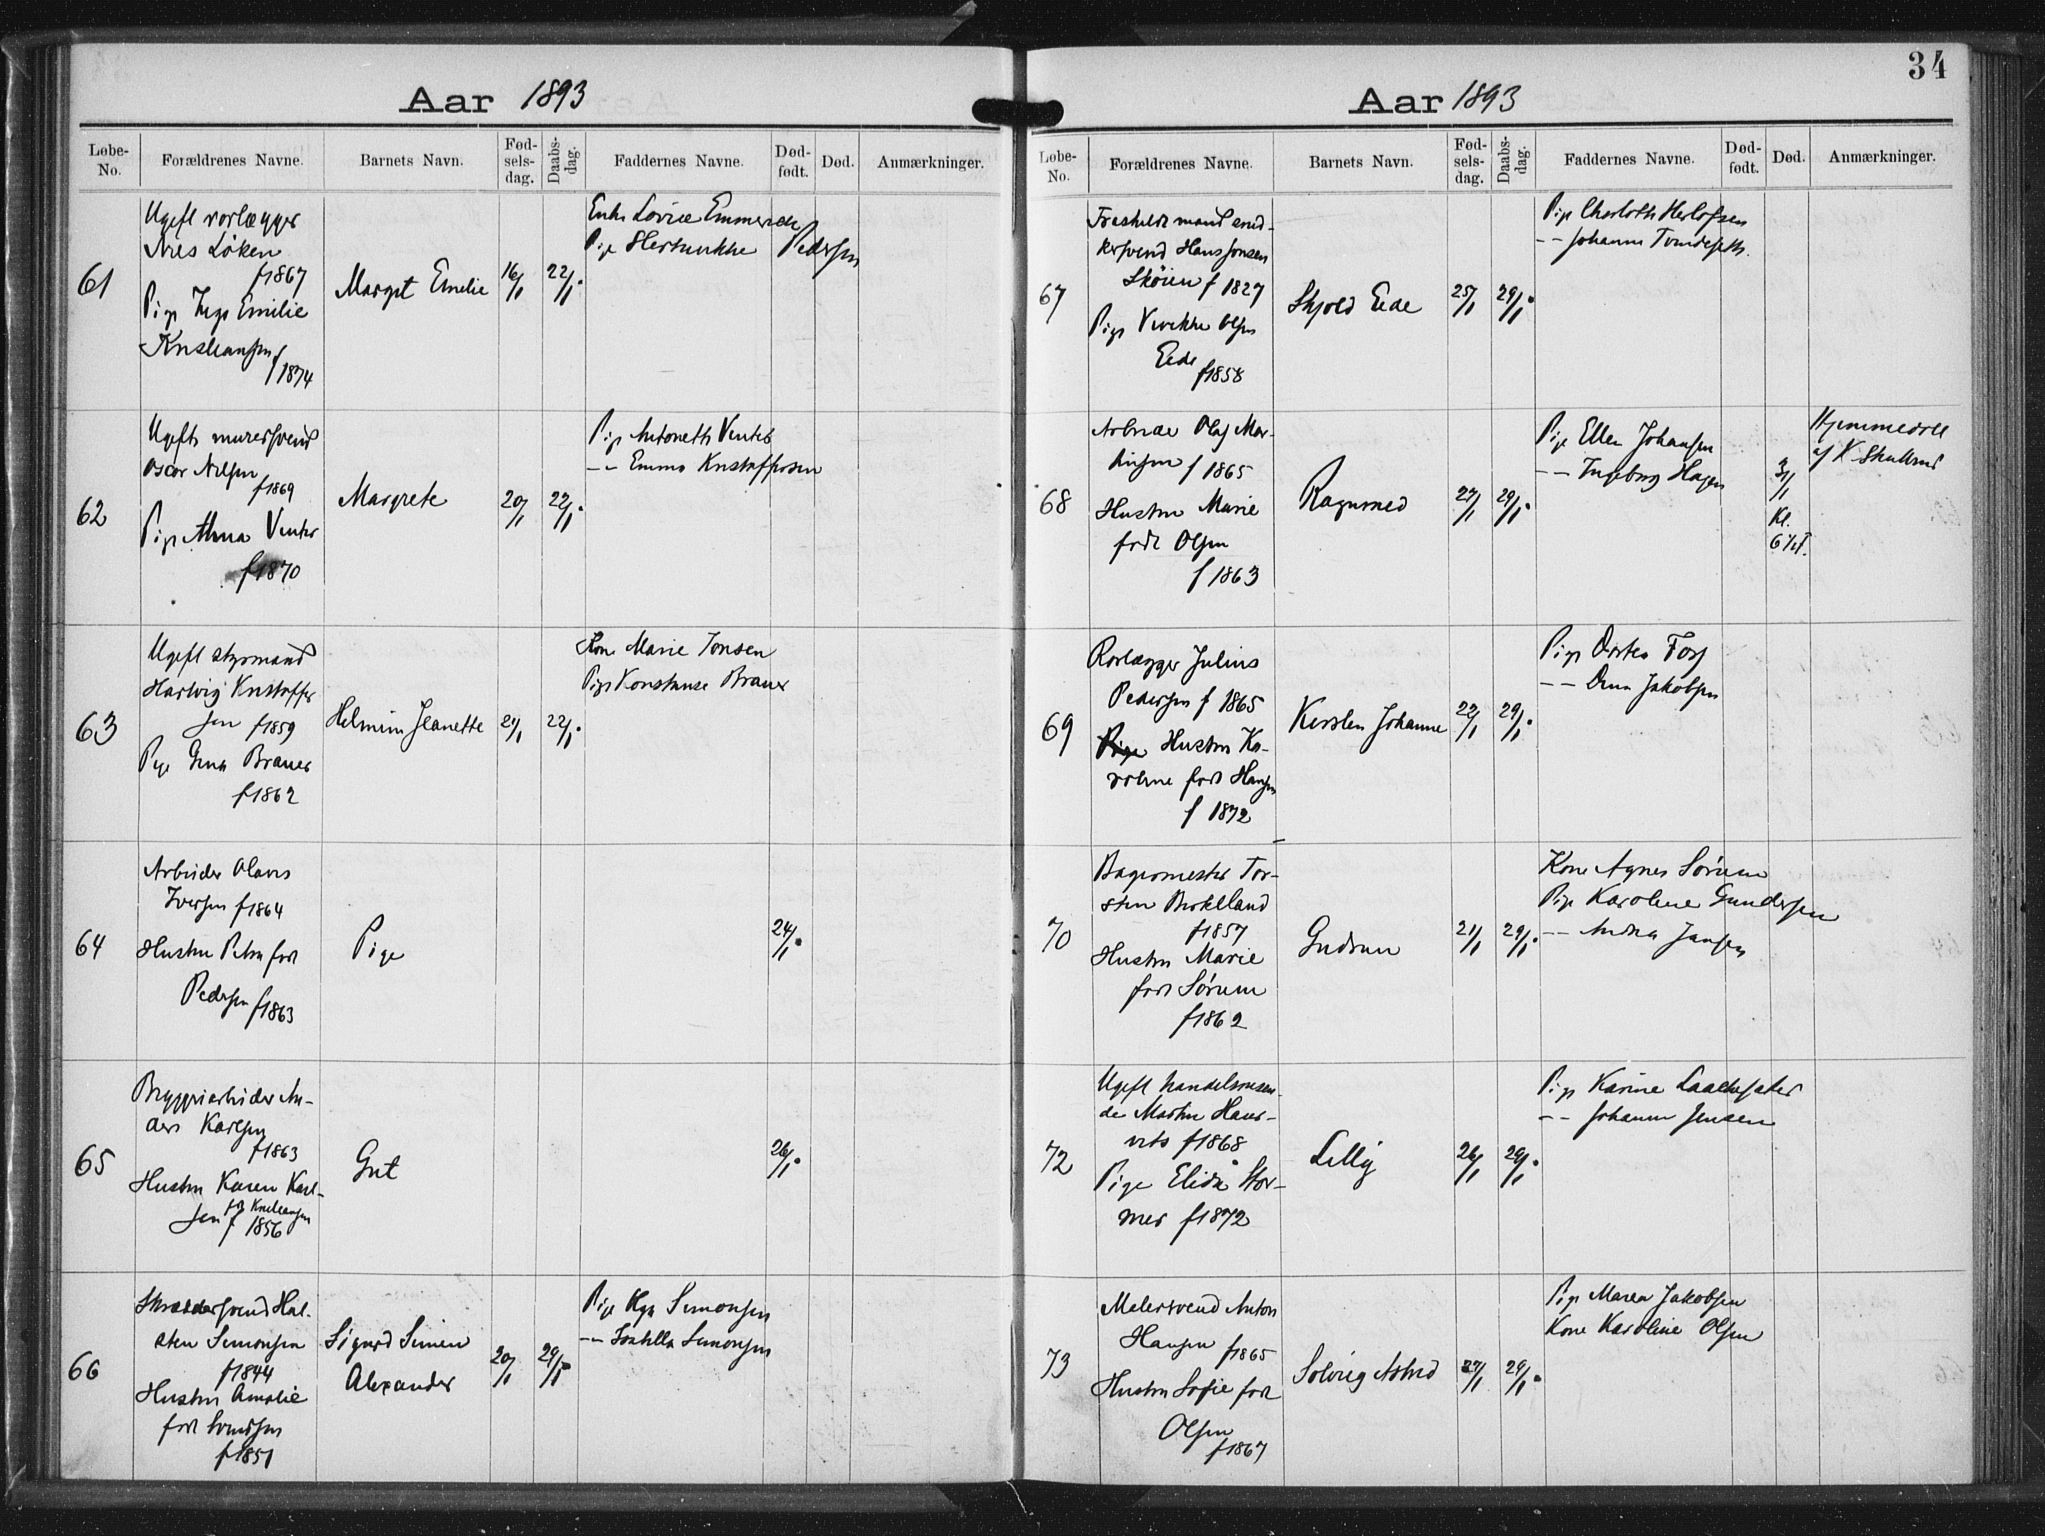 Aar 1893
Løbe-No. Forældrenes Navne. Barnets Navn. Fød-sels-dag. Daabs-dag. Faddernes Navne. Død-født. Død. Anmærkninger.
61
Ugift rørlægger
Løken
f 1867
Pige Inga Emilie
f 1874
Margit Emilie
16/1
22/1
Enke Lovise
Pige Pedersen
62
Ugift murersvend
Oscar Nilsen
f 1869
Pige
f 1870
Margrete
20/1
22/1
Pige Antonette
-- Emma Kristoffersen
63
Ugift styrmand
Hartvig Kristoffer
sen f 1859
Pige Gina Brauer
f 1862
Jeanette
21/1
22/1
Kone Marie Jonsen
Pige Konstanse Brauer
64
Arbeider Olaves
Iversen f 1864
Hustru Petra født
Pedersen f 1863
Pige
24/1
65
Bryggeriarbeider An-
ders Karlsen
f 1863
Hustru Karen Karl-
født Kristiansen
sen f 1856
Gut
26/1
66
Skræddersvend Hal-
sten Simonsen
f 1844
Hustru Amalie
født Svendsen
f 1851
Sigurd
Alexander
20/1
29/1
Pige Simonsen
-- Simonsen
34
Aar 1893
Løbe-No. Forældrenes Navne. Barnets Navn. Fød-sels-dag. Daabs-dag. Faddernes Navne. Død-født. Død. Anmærkninger.
67
Fraskildt mand sned-
kersvend Hans Jonsen
Skøien f 1827
Pige Olsen
Eede
f 1858
Skjold Eede
25/1
29/1
Pige Charlotte Herlofsen
-- Johanne
68
Arbeider Olaf Mar-
tinsen f 1865
Hustru Marie
født Olsen
f 1863
Ragna
27/1
29/1
Pige Ellen Johansen
-- Ingeborg Hagen
Kl.
Hjemmedøbt
af K.
69
Rørlægger Julius
Pedersen f 1865
Hustru Ka-
roline født Hansen
f 1872
Kirsten Johanne
22/1
29/1
Pige Dortea Foss
-- Jakobsen
70
Bagermester Tor-
sten
f 1857
Hustru Marie
født Sørum
f 1862
Gudrun
21/1
29/1
Kone Agnes Sørum
Pige Karoline Gundersen
-- Andrea Jansen
72
Ugift handelsreisen-
de Martin
f 1868
Pige Elida Stor-
mer f 1872
Lilly
26/1
29/1
Pige Karine
-- Johanne Jensen
73
Malersvend Anton
Hansen f 1865
Hustru Sofie født
Olsen
f 1867
Solveig Astrid
27/1
29/1
Pige Maren Jakobsen
Kone Karoline Olsen